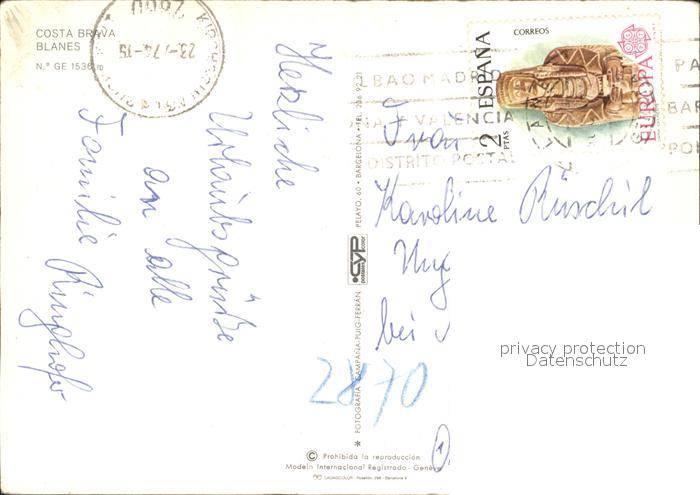 COSTA BRAVA
BLANES
N.º GE 1536
Herzliche
Urlaubsgrüße
an alle
Familie Ringhofer
PELAYO, 60 • BARCELONA • TEL. 206 92 21
CYP
* FOTOGRAFIA CAMPAÑA-PUIG-FERRAN
© Prohibida la reproducción
Modelo Internacional Registrado - Genève
CORREOS
2 PTAS ESPAÑA
EUROPA
BAO MADRID
VALENCIA
DISTRITO POSTAL
2800
KIRCHSCHLAG
23.-5.74-15
Karoline
bei
2870
privacy protection
Datenschutz